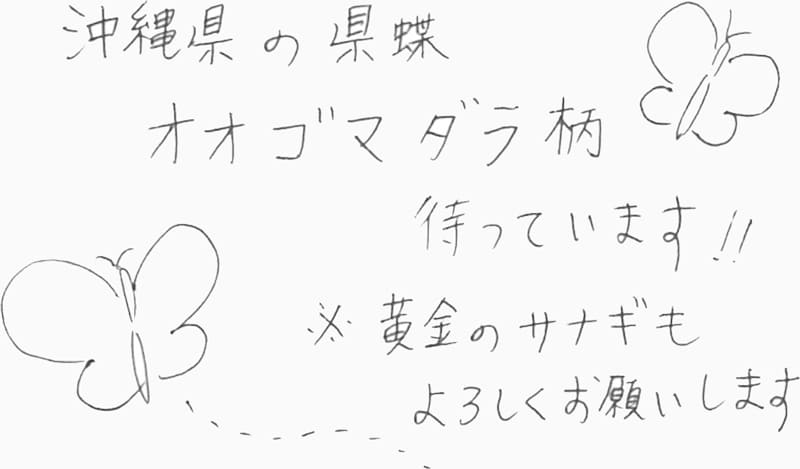 沖縄県の県蝶
オオゴマダラ柄
待っています!!
※黄金のサナギも
よろしくお願いします